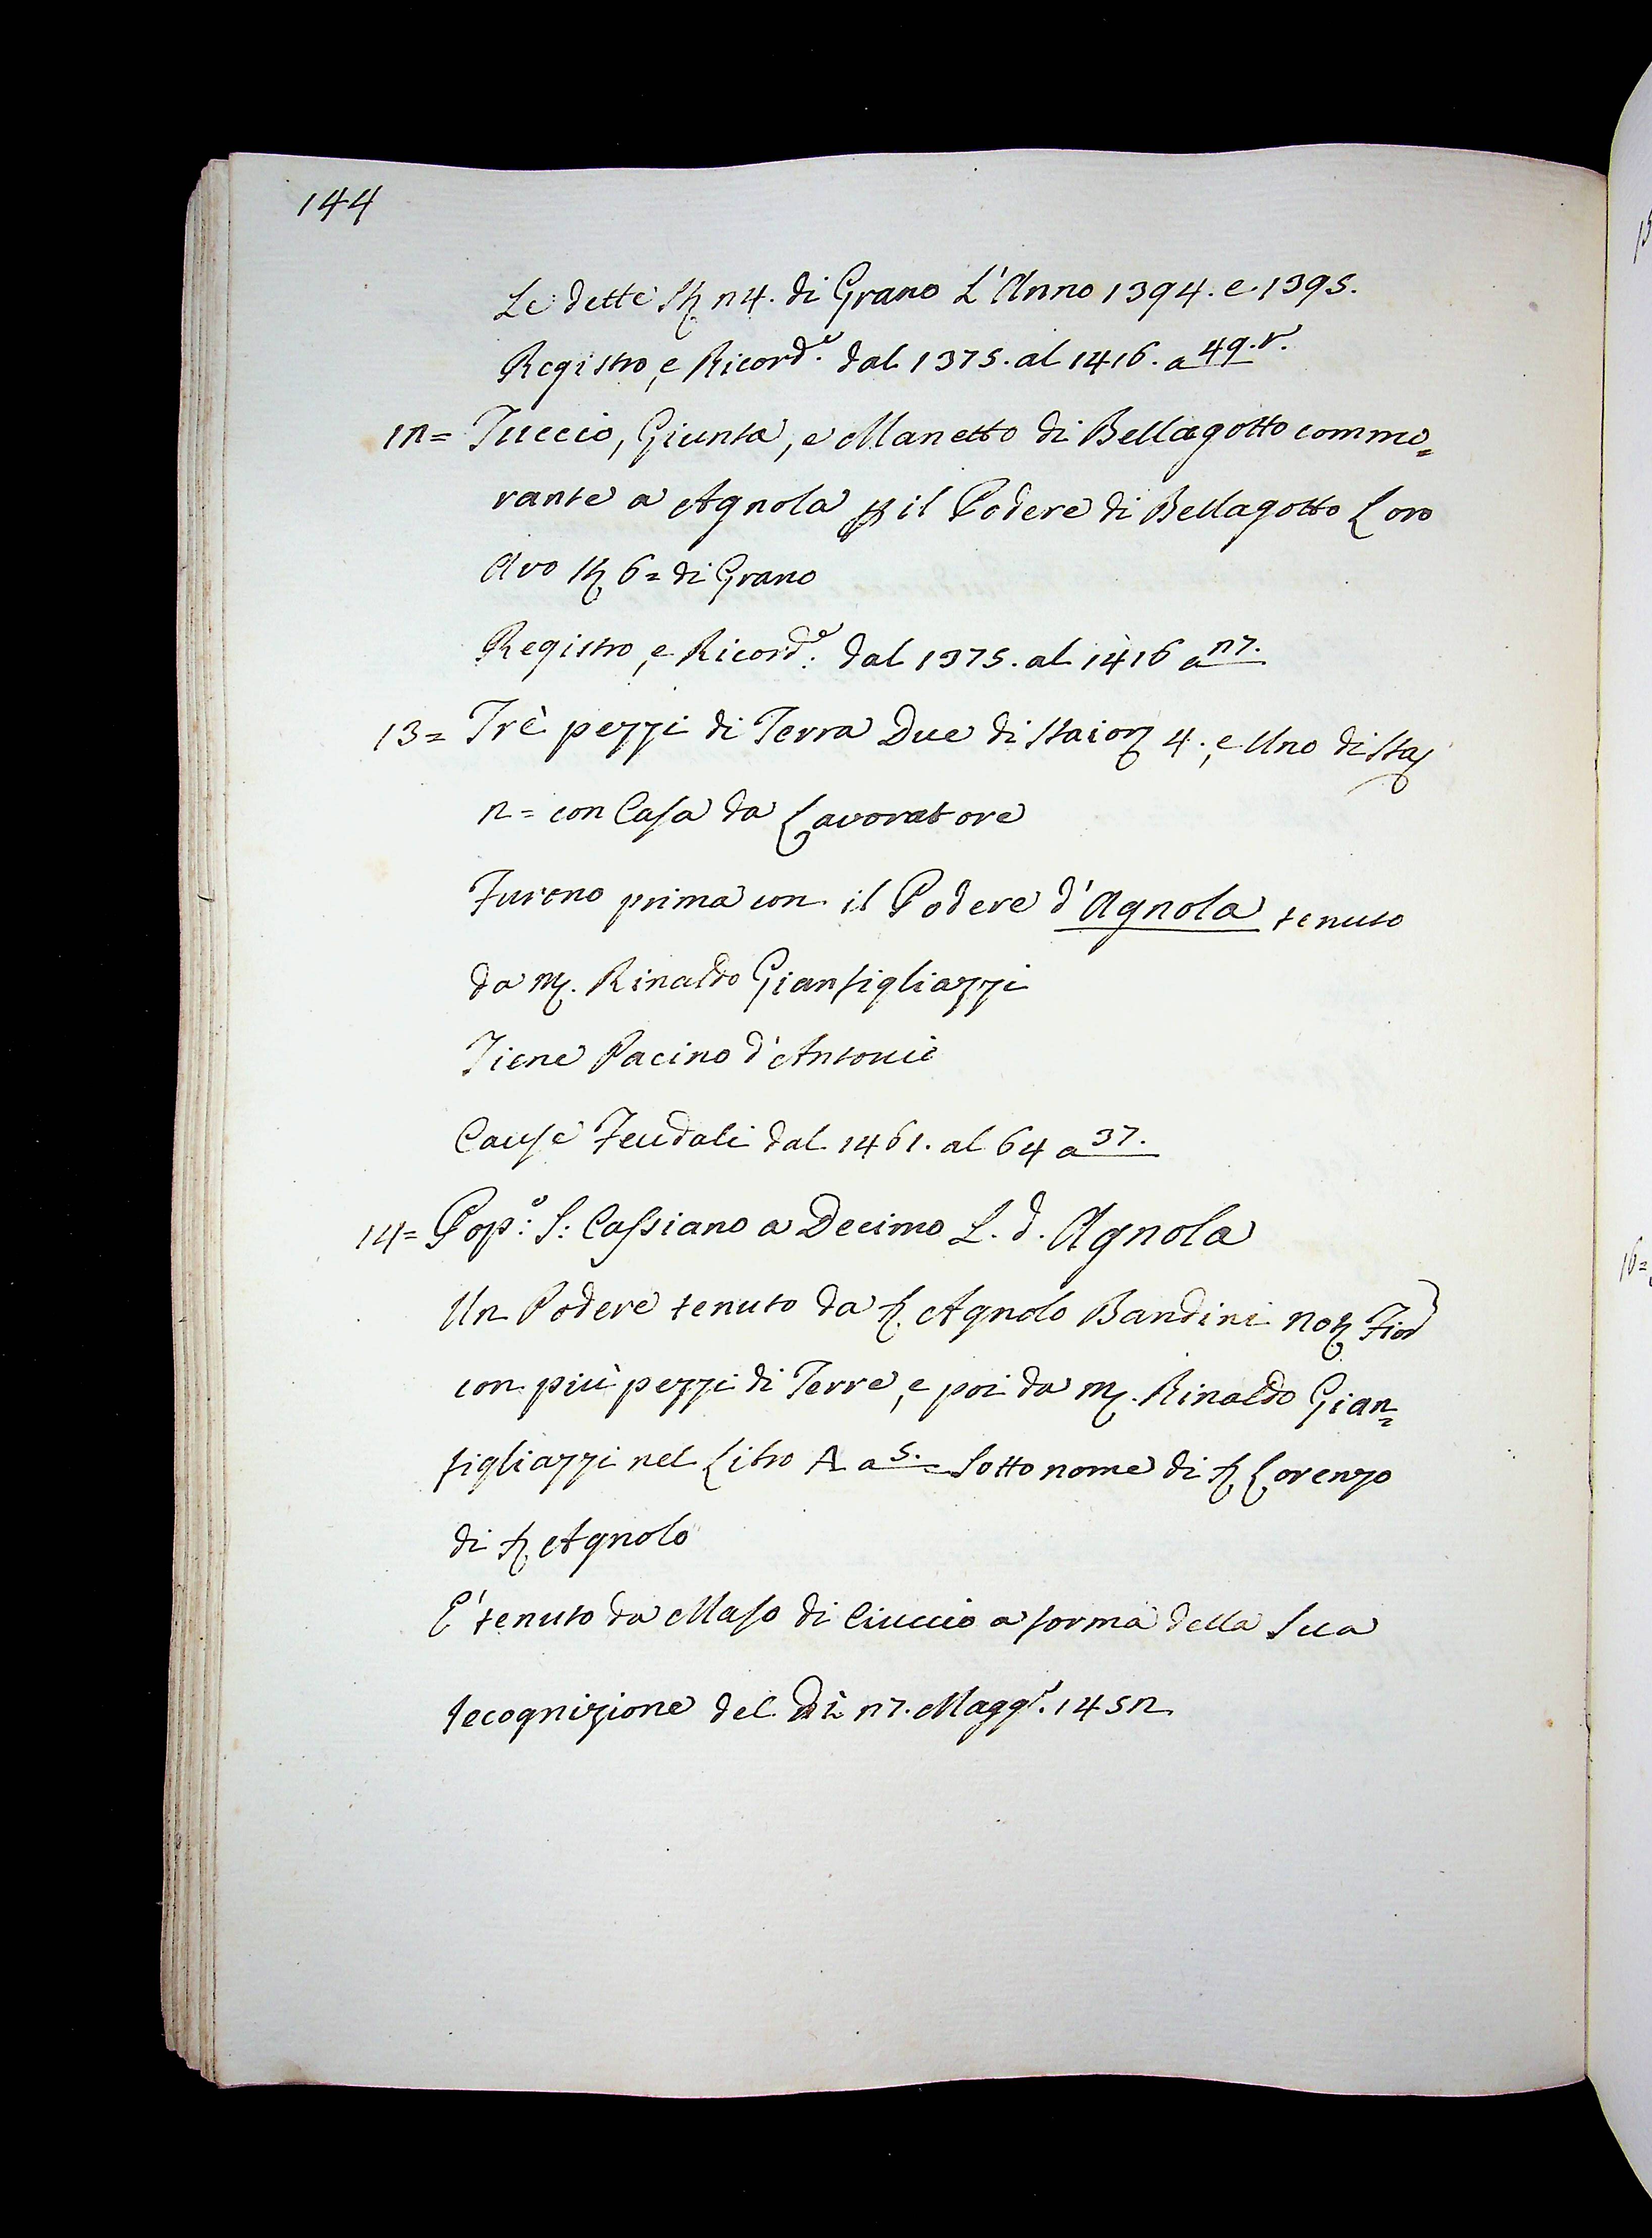 144
Le dette St. 24. di Grano L'Anno 1394. e. 1395.
Registro, e Ricord.e dal 1375. al 1416. a 49.r.
12= Tuccio, Giunta, e Manetto di Bellagotto commo=
rante a Agnola p il Podere di Bellagotto Loro
Avo St. 6= di Grano
Registro, e Ricord.e dal 1375. al 1416 a 27.
13= Trè pezzi di Terra Due di staior. 4., e Uno di sta.
2= con Casa da Lavoratore
Furono prima con il Podere d'Agnola tenuto
da M. Rinaldo Gianfigliazzi
Tiene Pacino d'Antonio
Cause Feudali dal 1461. al 64 a 37.
14= Pop.o S: Cassiano a Decimo L. d. Agnola
Un Podere tenuto da S. Agnolo Bandini Not. Fior
con più pezzi di Terre, e poi da M. Rinaldo Gian=
figliazzi nel Libro A a 5. = Sotto nome di S. Lorenzo
di S. Agnolo
E' tenuto da Maso di Ciuccio a forma della Sua
recognizione del Dì 27. Magg.o 1452